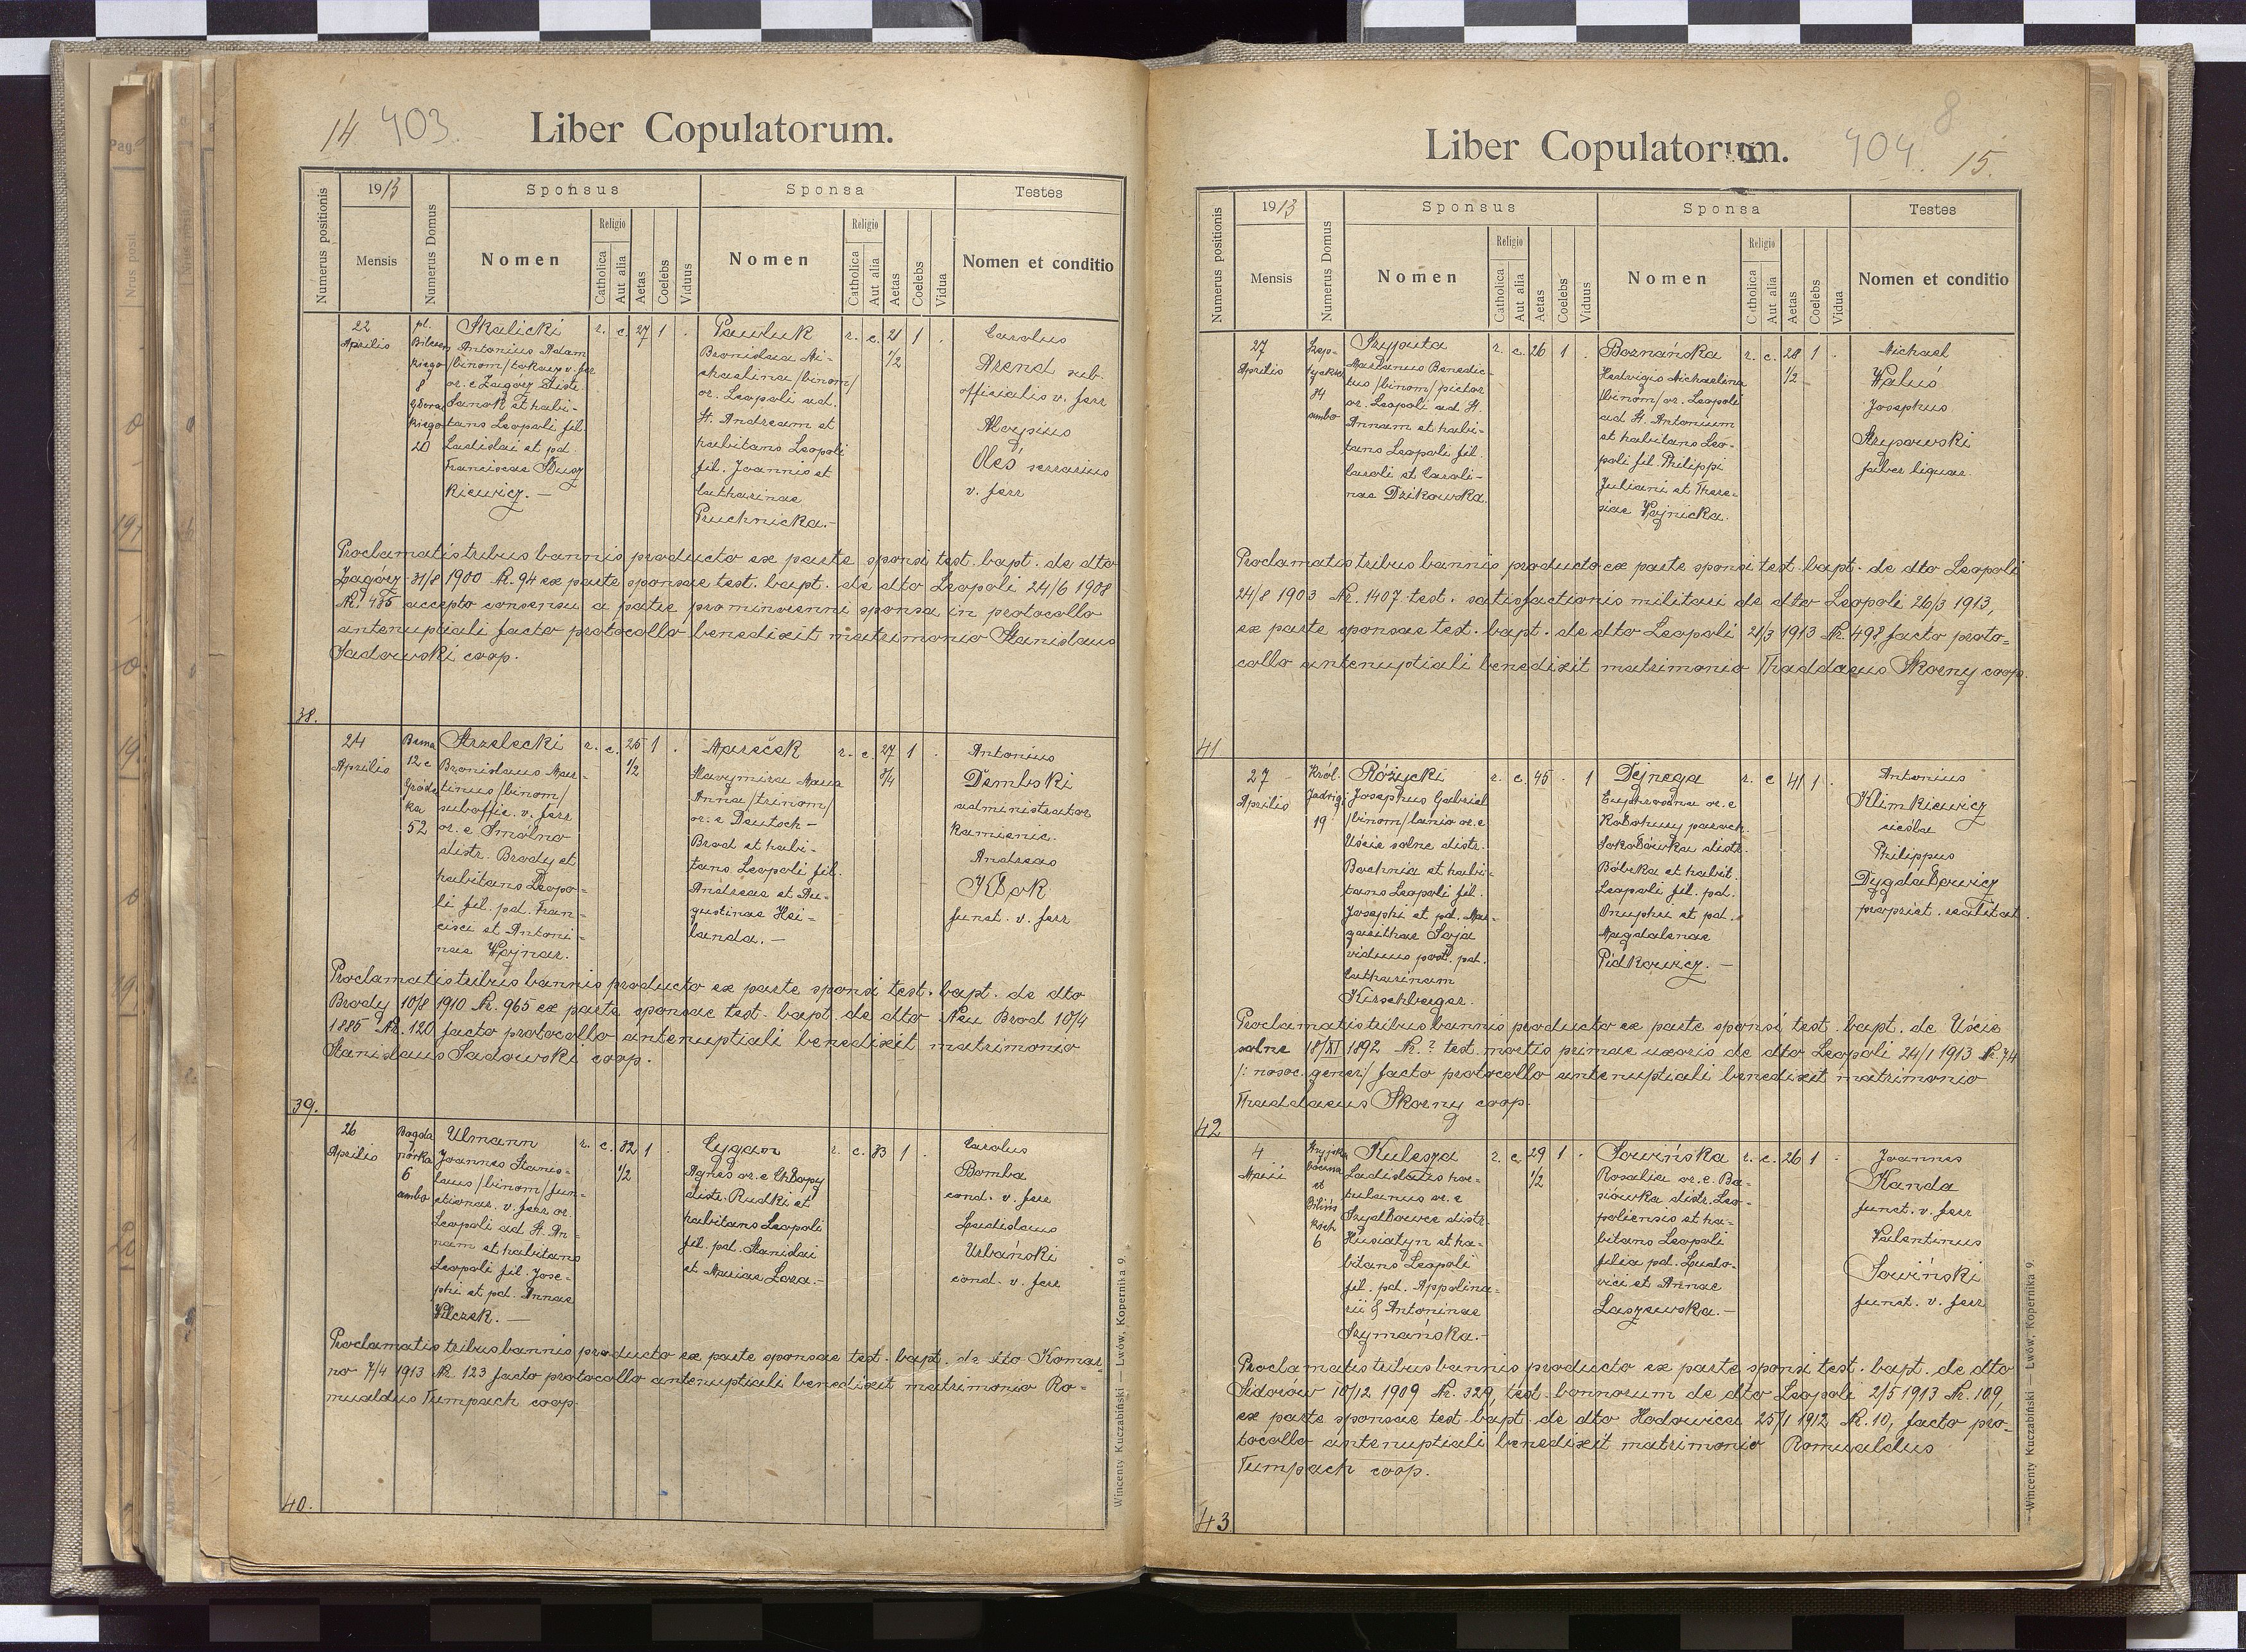 14 403.
Liber Copulatorum.
Numerus positionis
1913
Mensis
Numerus Domus
Sponsus
Nomen
Religio
Catholica
Aut alia
Aetas
Coelebs
Viduus
Sponsa
Nomen
Religio
Catholica
Aut alia
Aetas
Coelebs
Vidua
Testes
Nomen et conditio
38.
22
Aprilis
8
20
Skalicki
Antonius Adam
/binom/ tokarz v. ferr
or. e Zagórz distr.
Sanok et habi-
tans Leopoli fil.
Ladislai et pd.
Franciscae
kiewicz. —
r. c. 27 1 .
Pawluk
Bronislava Mi-
chaelina /binom/
or. Leopoli ad.
St. Andream et
habitans Leopoli
fil. Joannis et
Catharinae
Pruchnicka.—
r. c. 21 1 .
1/2
Carolus
Arend sub.
officialis v. ferr
Aloysius
Oleś serrarius
v. ferr
Proclamatis tribus bannis producto ex parte sponsi test. bapt. de dto
Zagórz 31/8 1900 Nr. 94 ex parte sponsae test. bapt. de dto Leopoli 24/6 1908
Nr. 485 accepto consensu a patre pro minorenni sponsa in protocollo
antenuptiali facto protocollo benedixit matrimonio Stanislaus
Sadowski coop.
39.
24
Aprilis
Bema
12c
Gróde
ka
52
Strzelecki
Bronislaus Mar-
tinus /binom/
suboffic. v. ferr
or. e Smólno
distr. Brody et
habitans Leopo-
li fil. pd. Fran-
cisci et Antoni-
nae Wojnar.
r. c. 25 1 .
1/2
Slavymira Maria
Anna /trinom/
or. e Deutsch-
Brod et habi-
tans Leopoli fil.
Andreae et Au-
gustinae Hei-
landa. —
r. c. 27 1 .
3/4
Antonius
Dembski
administrator
kamienic.
Andreas
Kłok
funct. v. ferr
Proclamatis tribus bannis producto ex parte sponsi test. bapt. de dto
Brody 10/8 1910 Nr. 965 ex parte sponsae test. bapt. de dto Neu Brod 10/4
1885 Nr. 120 facto protocollo antenuptiali benedixit matrimonio
Stanislaus Sadowski coop.
40.
26
Aprilis
Bogda
nówka
6
ambo
Ulmann
Joannes Stanis-
laus /binom/ fun-
ctionar. v. ferr or.
Leopoli ad St. An-
nam et habitans
Leopoli fil. Jose-
phi et pd. Annae
Wilczek. —
r. c. 32 1 .
1/2
Cygan
Agnes or. e Chłopy
distr. Rudki et
habitans Leopoli
fil. pd. Stanislai
et Mariae Loza.—
r. c. 33 1 .
Carolus
Bomba
cond. v. ferr
Ladislaus
Urbański
cond. v. ferr
Proclamatis tribus bannis producto ex parte sponsae test. bapt. de dto Komar-
no 7/4 1913 Nr. 123 facto protocollo antenuptiali benedixit matrimonio Ro-
mualdus Tumpach coop.
Wincenty Kuczabiński — Lwów, Kopernika 9.
8
Liber Copulatorum.
404. 15.
Numerus positionis
1913
Mensis
Numerus Domus
Sponsus
Nomen
Religio
Catholica
Aut alia
Aetas
Coelebs
Viduus
Sponsa
Nomen
Religio
Catholica
Aut alia
Aetas
Coelebs
Vidua
Testes
Nomen et conditio
41
27
Aprilis
Szep-
tyckich
34
ambo
Szyputa
Marianus Benedic-
tus /binom/ pictor
or. Leopoli ad St.
Annam et habi-
tans Leopoli fil.
Caroli et Caroli-
nae Dzikowska.
r. c. 26 1 .
Boznańska
Hedvigis Michaelina
/binom/ or. Leopoli
ad St. Antonium
et habitans Leo-
poli fil. Philippi
Juliani et There-
siae Wojnicka.
r. c. 28 1 .
1/2
Michael
Waluś
Josephus
Strypowski
faber lignar.
Proclamatis tribus bannis producto ex parte sponsi test. bapt. de dto Leopoli
24/8 1903 Nr. 1407 test. satisfactionis militari de dto Leopoli 26/3 1913,
ex parte sponsae test. bapt. de dto Leopoli 21/3 1913 Nr. 498 facto proto-
collo antenuptiali benedixit matrimonio Thaddaeus Skorny coop.
42
27
Aprilis
Król.
Jadwigi
19
Różycki
Josephus Gabriel
/binom/ lanio or. e
Uście solne distr.
Bochnia et habi-
tans Leopoli fil.
Josephi et pd. Mar-
garithae Soja
viduus post. pd.
Catharinam
Kirschberger.
r. c. 45 . 1
Dejnega
Euphrosina or. e
paroch.
Sokołówka distr.
Bóbrka et habit.
Leopoli fil. pd.
Onuphri et pd.
Magdalenae
Pidkowicz. —
r. c 41 1 .
Antonius
Klimkiewicz
cieśla
Philippus
Dygdałowicz
propriet. realitat.
Proclamatis tribus bannis producto ex parte sponsi test. bapt. de Uście
solne 18/XI 1892 Nr. ? test. mortis primae uxoris de dto Leopoli 24/1 1913 Nr. 74
/: nosoc. gener/ facto protocollo antenuptiali benedixit matrimonio
Thaddaeus Skorny coop.
43
4
Maii
boczna
et
Biliń
skich
6
Kulesza
Ladislaus hor-
tulanus or. e
Szydłowce distr.
Husiatyn et ha-
bitans Leopoli
fil. pd. Appolina-
rii & Antoninae
Szymańska.—
r. c. 29 1 .
1/2
Sowińska
Rosalia or. e. Ba-
siówka distr. Leo-
poliensis et ha-
bitans Leopoli
filia pd. Ludo-
vici et Annae
Laszewska.—
r. c. 26 1 .
Joannes
Kanda
funct. v. ferr
Valentinus
Sowiński
funct. v. ferr
Proclamatis tribus bannis producto ex parte sponsi test. bapt. de dto
Sidorów 10/12 1909 Nr. 329, test. bannorum de dto Leopoli 2/5 1913 Nr. 109,
ex parte sponsae test. bapt. de dto Hodowica 25/1 1912 Nr. 10, facto pro-
tocollo antenuptiali benedixit matrimonio Romualdus
Tumpach coop.
Wincenty Kuczabiński — Lwów, Kopernika 9.